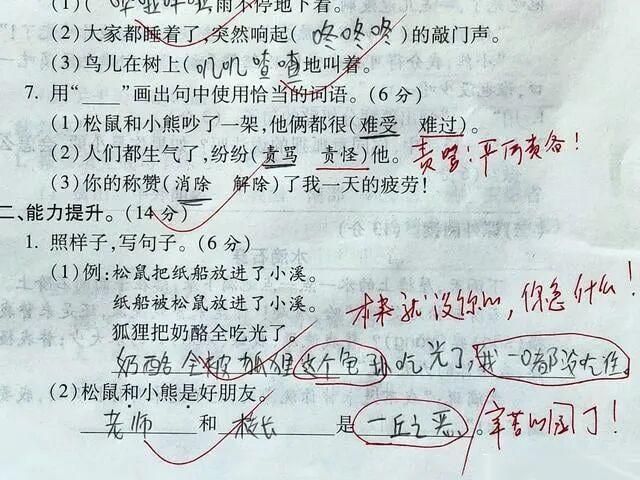 (1)(哗啦哗啦)雨不停地下着。
(2)大家都睡着了,突然响起(咚咚咚)的敲门声。
(3)鸟儿在树上(叽叽喳喳)地叫着。
7. 用“____”画出句中使用恰当的词语。(6分)
(1)松鼠和小熊吵了一架,他俩都很(难受 难过)。
(2)人们都生气了,纷纷(责骂 责怪)他。 责骂:平而责备!
(3)你的称赞(消除 解除)了我一天的疲劳!
二、能力提升。(14分)
1. 照样子,写句子。(6分)
(1)例:松鼠把纸船放进了小溪。
纸船被松鼠放进了小溪。
本来就没你的,你急什么!
狐狸把奶酪全吃光了。
奶酪全被狐狸这个龟孙吃光了,我一口都没吃住。
(2)松鼠和小熊是好朋友。
老师 和 校长 是 一丘之恶。 辛苦的园丁!